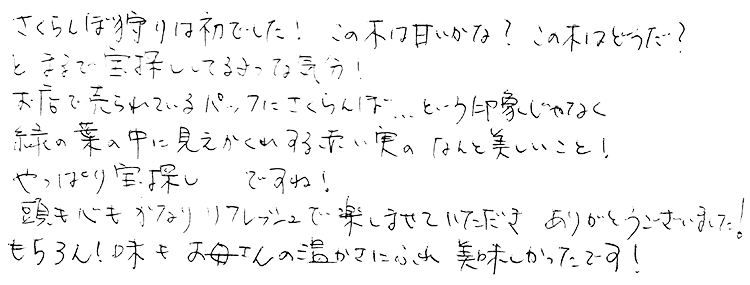 さくらんぼ狩りは初でした! この木は甘いかな? この木はどうだ?
と まるで宝探ししてるような気分!
お店で売られているパックにさくらんぼ…という印象じゃなく
緑の葉の中に見えかくれする赤い実の なんと美しいこと!
やっぱり宝探し ですね!
頭も心も かなりリフレッシュで楽しませていただき ありがとうございました!
もちろん!味も お母さんの温かさにふれ 美味しかったです!